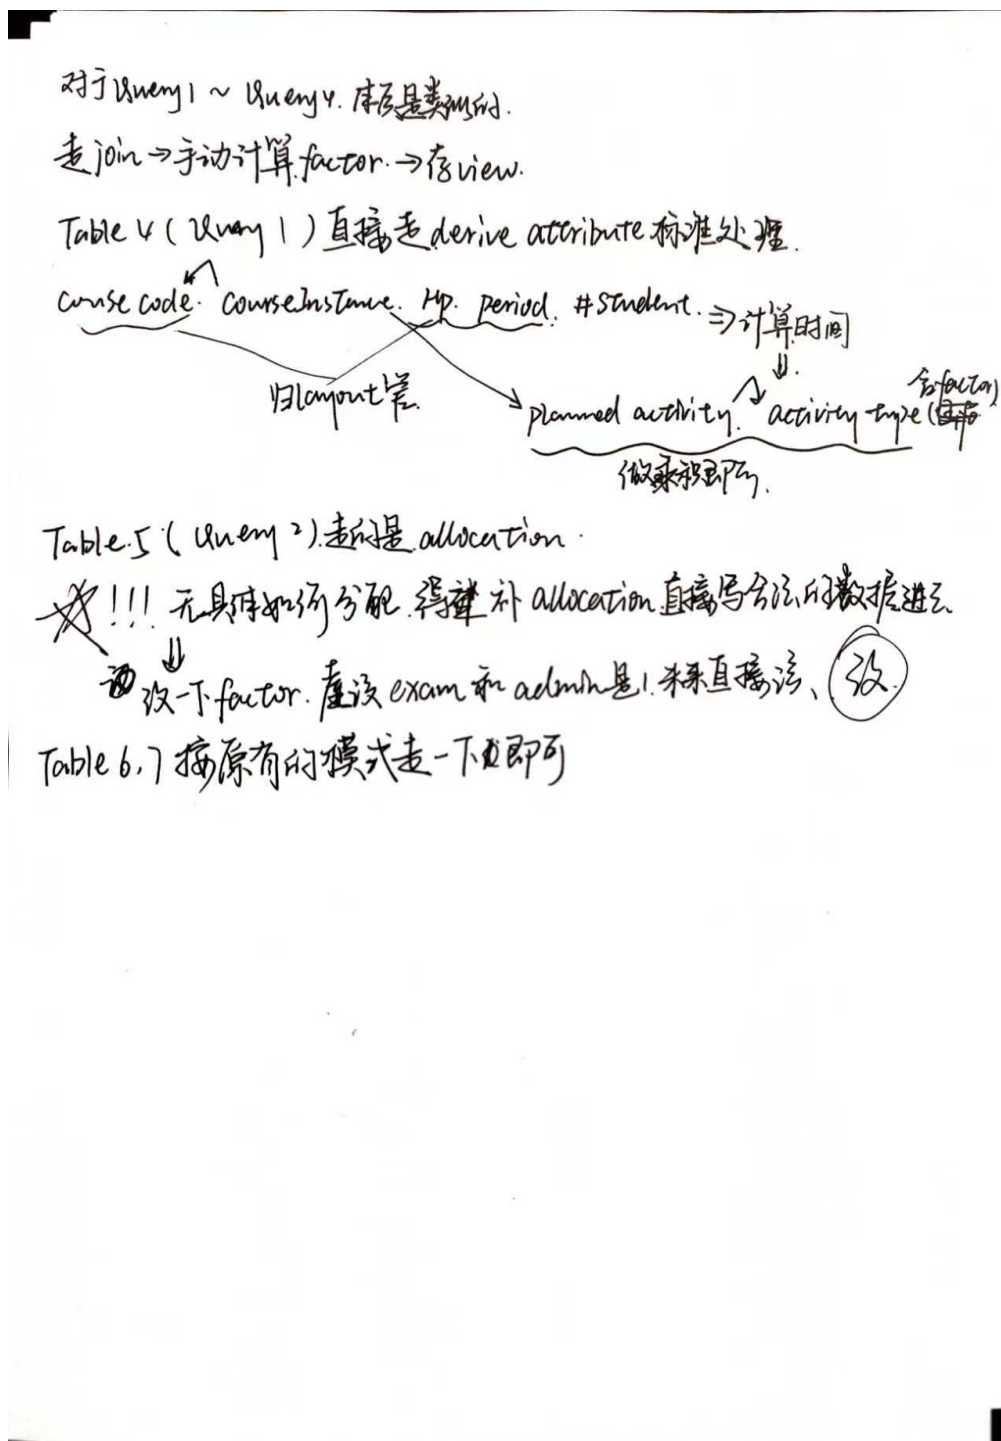 对于Query1 ~ Query4. 本质是类似的.
走join→手动计算factor.→存view.
Table 4 (Query 1) 直接走derive attribute标准处理.
course code. courseInstance. Hp. period. #student. ⇒计算时间
归layout管.
planned activity. activity type (含factor)
做乘积即可.
Table.5 (Query 2).走的是allocation.
!!! 无具体如何分配.得 补allocation直接写合法的数据进去.
改一下factor. 虚设exam和admin是1. 直接 、改.
Table 6,7 按原有的模式走一下 即可